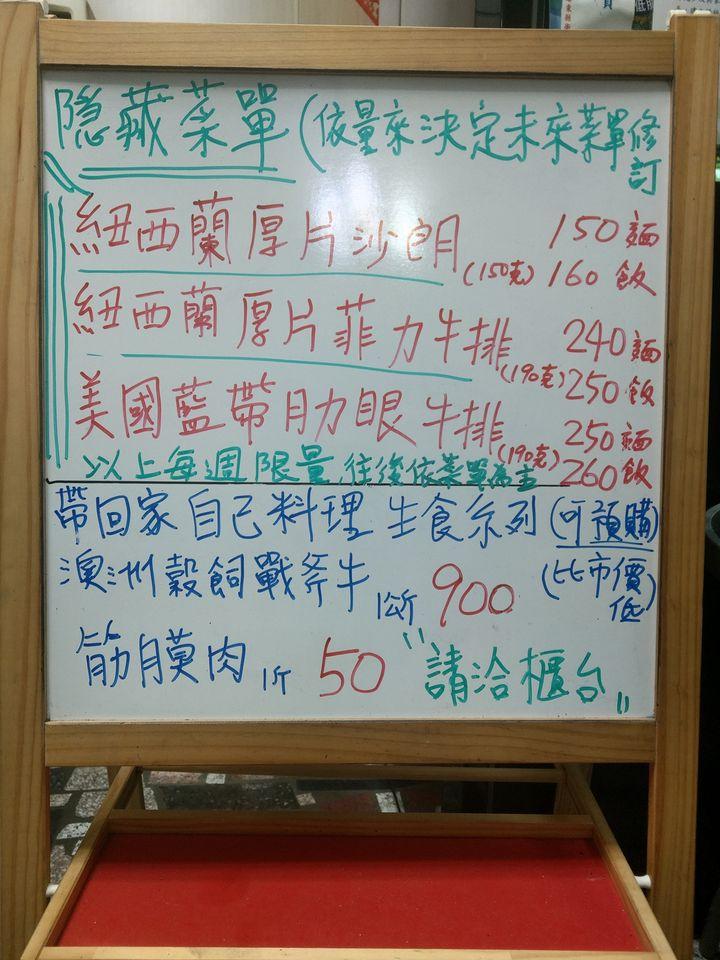 隱藏菜單(依量來決定未來菜單修訂
紐西蘭厚片沙朗 150麵
(150克) 160飯
紐西蘭厚片菲力牛排 240麵
(190克) 250飯
美國藍帶肋眼牛排 250麵
(190克) 260飯
以上每週限量 往後依菜單為主
帶回家自己料理 生食系列(可預購)
澳洲穀飼戰斧牛 1公斤 900 (比市價低)
筋膜肉 1斤 50 "請洽櫃台"